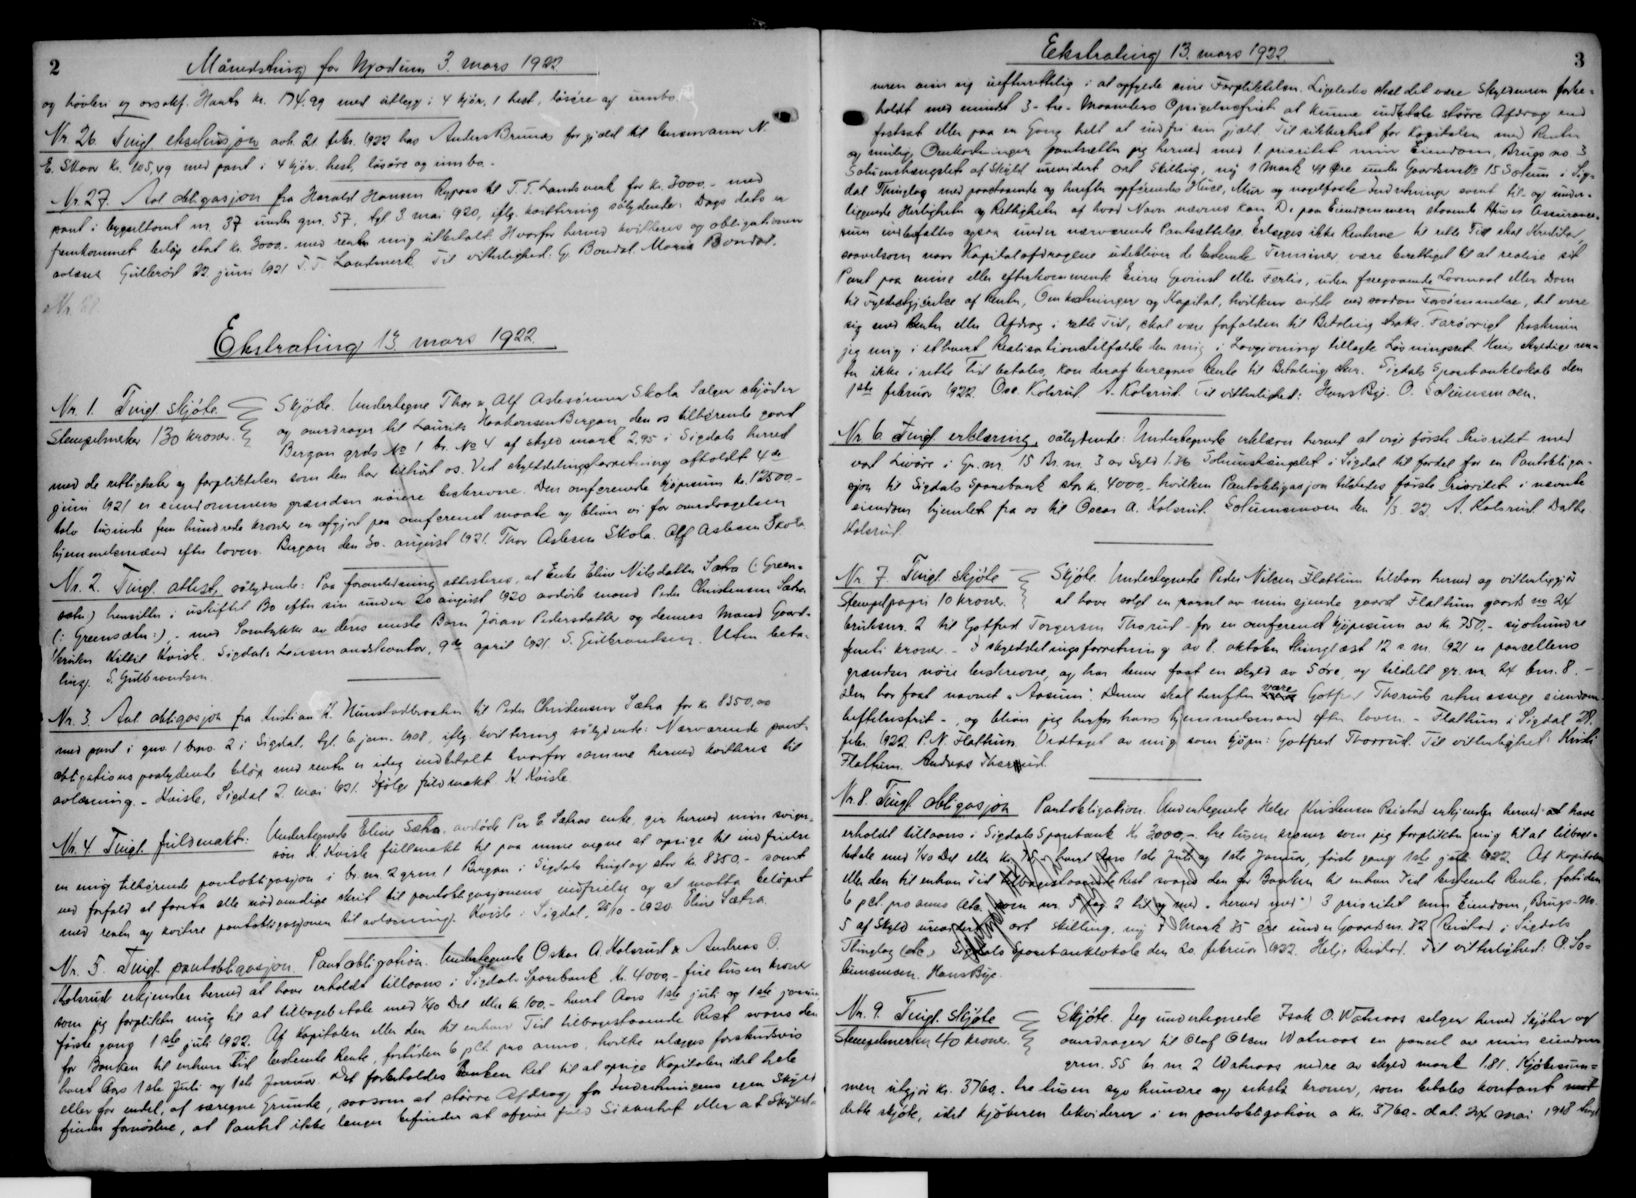 2
Månedsting for Modum 3. mars 1922.
og hövleri og avsokf. Hauts kr. 174.99 med utlegg i 4 kjör, 1 hest, lösöre og innbo
Nr. 26. Tingl. eksekusjon avh. 21 febr. 1922 hos Anders Brunes for gjæld til lensmann N.
E. Skaar kr. 105,49 med pant i 4 kjör. hest, lösöre og innbo.
Nr. 27. Avl. obligasjon fra Harald Hansen til T. T. Landsverk for kr. 3000,- med
pant i bygseltomt nr. 37 under gnr. 57, tgl. 3 mai 1920, iflg. kvittering sålydende: Dags dato er
fremkommet beløp stort kr. 3000.- med renter mig utbetalt. Hvorfor herved kvitteres og obligationen
avlæses Gulterød 22 juni 1921 T. T. Landsverk. Til vitterlighet: G. Bondal. Marie Bondal.
Nr. 28
Ekstrating 13 mars 1922.
Nr. 1. Tingl. skjöte. Skjöte. Undertegnede Thor & Alf Aslesönner Skola sælger skjöter
Stempelmerker 130 kroner. og overdrager til Laurits Haakonsen Bergan, den os tilhörende gaard
Bergan grds No 1 br. No 4 af skyld mark 2.95 i Sigdals herred
med de rettigheter og forpliktelser som den har tilhört os. Ved skylddelingsforretning afholdt 4de
juni 1921 er eiendommens grændser nöiere beskrevne. Den omforenede kjöpesum kr. 12500.-
tolv tusinde fem hundrede kroner er afgjort paa omforenet maate og bliver vi for overdragelsen
hjemmelsmænd efter loven. Bergan den 30. august 1921. Thor Aslesen Skola. Alf Aslesen Skola.
Nr. 2. Tingl. attest, sålydende: Paa foranledning attesteres, at Enke Eline Nilsdatter Sætra (: Green-
sæter:) hensitter i uskiftet Bo efter sin under 20 august 1920 avdöde mand Peder Christensen Sætra
(: Greensæter:), - med Samtykke av deres eneste Barn Joran Pedersdatter og dennes Mand Gaard-
bruker Kittil Kvisle. Sigdals Lensmandskontor, 9de april 1921. S. Gulbrandsen. Uten beta-
ling. S. Gulbrandsen.
Nr. 3. Avl. obligasjon fra Kristian K. Hunstadbraaten til Peder Christensen Sætra for kr. 8350,00
med pant i gnr 1 brno. 2 i Sigdal, tgl. 6 jan. 1908, iflg. kvittering sålydende: Nærværende pant-
obligations paalydende beløp med renter er idag indbetalt hvorfor samme herved kvitteres til
avlæsning. - Kvisle, Sigdal 2. mai 1921. Ifölge fuldmakt K. Kvisle.
Nr. 4. Tingl. fuldmakt: Undertegnede Eline Sætra. avdöde Per C. Sætras enke, gir herved min sviger-
sön K. Kvisle fullmakt til paa mine vegne at opsige til indfrielse
en mig tilhörende pantobligasjon i br. nr. 2 grnr. 1 Bergan i Sigdals tinglag stor kr. 8350.- samt
ved forfald at foreta alle nödvendige skrit til pantobligasjonens indfrielse og at motta beløpet
med renter og kvitere pantobligasjonen til avlæsning. Kvisle i Sigdal. 25/10-1920. Eline Sætra.
Nr. 5. Tingl. pantobligasjon. Pantobligation. Undertegnede Oskar A. Kolsrud & Andreas O.
Kolsrud erkjender herved at have erholdt tillaans i Sigdals Sparebank Kr. 4000,- fire tusen kroner
som jeg forplikter mig til at tilbagebetale med 1/40 Del eller kr. 100.- hvert Aars 1ste juli og 1ste januar,
förste gang 1ste juli 1922. Af Kapitalen eller den til enhver Tid tilbagestaaende Rest svares den
for Banken til enhver Tid bestemte Rente, fortiden 6 pCt. pro anno, hvilke erlægges forskudsvis
hvert Aars 1ste Juli og 1ste Januar. Det forbeholdes Banken Ret til at opsige Kapitalen i det hele
eller for endel, af særegne Grunde, saasom at större Afdrag for Indretningens egen Skyld
findes fornödne, at Pantet ikke længer befindes at afgive fuld Sikkerhet eller at Skyldne-
Ekstrating 13. mars 1922. 3
neren viser sig uefterrettelig i at opfylde sine Forpliktelser. Ligeledes skal det være Skyldneren forbe-
holdt med mindst 3-tre-Maaneders Opsigelsesfrist at kunne indbetale större Afdrag end
fastsat eller paa en Gang helt at indfri sin Gjæld. Til sikkerhet for Kapitalen med Renter
og mulige Omkostninger pantsættes jeg herved med 1 prioritet min Eiendom, Brugs no. 3
Solumshænglet af Skyld urevidert Ort Skilling, ny 1 Mark 41 Öre under Gaardsno 15 Solum i Sig-
dal Thinglag med paastaaende og herefter opförendes Huse, Mur og nagelfaste Indretninger samt til- og under-
liggende Herligheter og Rettigheter af hvad Navn nævnes kan. De paa Eiendommen staaende Huses Assurance-
sum indbefattes ogsaa under nærværende Pantsættelse. Erlægges ikke Renterne til rette Tid skal Kreditor,
saavelsom naar Kapitalafdragene udebliver de bestemte Terminer, være berettiget til at realisere sit
Pant paa mine eller efterkommende Eieres Gevinst eller Forlis, uden foregaaende Lovmaal eller Dom
til Fyldestgjörelse af Renter, Omkostninger og Kapital, hvilken sidste ved saadan Forsömmelse, det være
sig med Renter eller Afdrag i rette Tid, skal være forfalden til Betaling straks. Forövrigt fraskriver
jeg mig i ethvert Realisationstilfælde den mig i Lovgivning tillagte Lösningsret. Hvis skyldige ren-
ter ikke i rette Tid betales, kan deraf beregnes Rente til Betaling sker. Sigdals Sparebanklokale den
1ste februar 1922. Osc. Kolsrud. A. Kolsrud. Til vitterlighet: Hans Bye. O. Solumsmoen.
Nr. 6. Tingl. erklæring, sålydende: Undertegnede erklærer herved at vige förste Prioritet med
vort Livöre i Gr. nr. 15 Br. nr. 3 av Skyld 1.76 Solumshænglet i Sigdal til fordel for en Pantobliga-
sjon til Sigdals Sparebank stor kr. 4000.- hvilken Pantobligasjon tilstedes förste Prioritet i nævnte
eiendom hjemlet fra os til Oscar A. Kolsrud. Solumsmoen den 1/3. 22. A. Kolsrud. Dallte
Kolsrud.
Nr. 7. Tingl. Skjöte Skjöte. Undertegnede Peder Nilsen Flattum tilstaar herved og vitterliggjör
Stempelpapir 10 kroner. at have solgt en parsel av min eiende gaard Flattum gaards no 24
bruksnr. 2 til Gotfred Torgersen Thorrud - for en omforenet kjöpesum av kr. 750,- syvhundre
femti kroner. - I skylddelingsforretning av 8. oktober thinglæst 12 s. m. 1921 er parcellens
grændser nöie beskrevne, og har denne faat en skyld av 5 öre og tildelt gr. nr. 24 brn. 8.-
Den har faat navnet "Aasum". Denne skal herefter være Gotfred Thorruds retmæssige eiendom
heftelsesfrit -, og bliver jeg herfor hans hjemmelsmand efter loven. - Flattum i Sigdal 28.
febr. 1922 P. N. Flattum. Vedtaget av mig som kjöper: Gotfred Thorrud. Til vitterlighet: Kristi
Flattum. Andreas Thorrud.
Nr. 8. Tingl. obligasjon Pantobligation. Undertegnede Helge Kristensen Reistad erkjender herved at have
erholdt tillaans i Sigdals Sparebank Kr 3000,- tre tusen kroner som jeg forplikter mig til at tilbage-
betale med 1/40 Del eller kr. 75.- hvert Aars 1ste Juli og 1ste Januar, förste gang 1ste juli 1922. Af Kapitalen
eller den til enhver Tid tilbagestaaende Rest svares den for Banken til enhver Tid bestemte Rente, fortiden
6 pCt. pro anno etc. som nr. 5 dag 2 til og med "herved med") 3 prioritet min Eiendom, Brugs-No.
5 af Skyld urevidert ort skilling, ny 3 Mark 75 öre under Gaards nr. 32 Reistad i Sigdals
Thinglag (etc.) Sigdals Sparebanklokale den 20. februar 1922. Helge Reistad. Til vitterlighet: O. So-
lumsmoen. Hans Bye.
Nr. 9. Tingl. Skjöte Skjöte. Jeg undertegnede Isak O. Watnaas selger herved skjöter og
Stempelmerker 40 kroner. overdrager til Olaf Olsen Watnaas en parcel av min eiendom
grnr. 55 br. nr. 2 Watnaas nedre av skyld mark 1.81. Kjöbesum-
men utgjör kr. 3760. tre tusen syv hundre og seksti kroner, som betales kontant mot
dette skjöte, idet kjöberen likviderer i en pantobligation a kr. 3760.- dat. 24 mai 1918 tingl